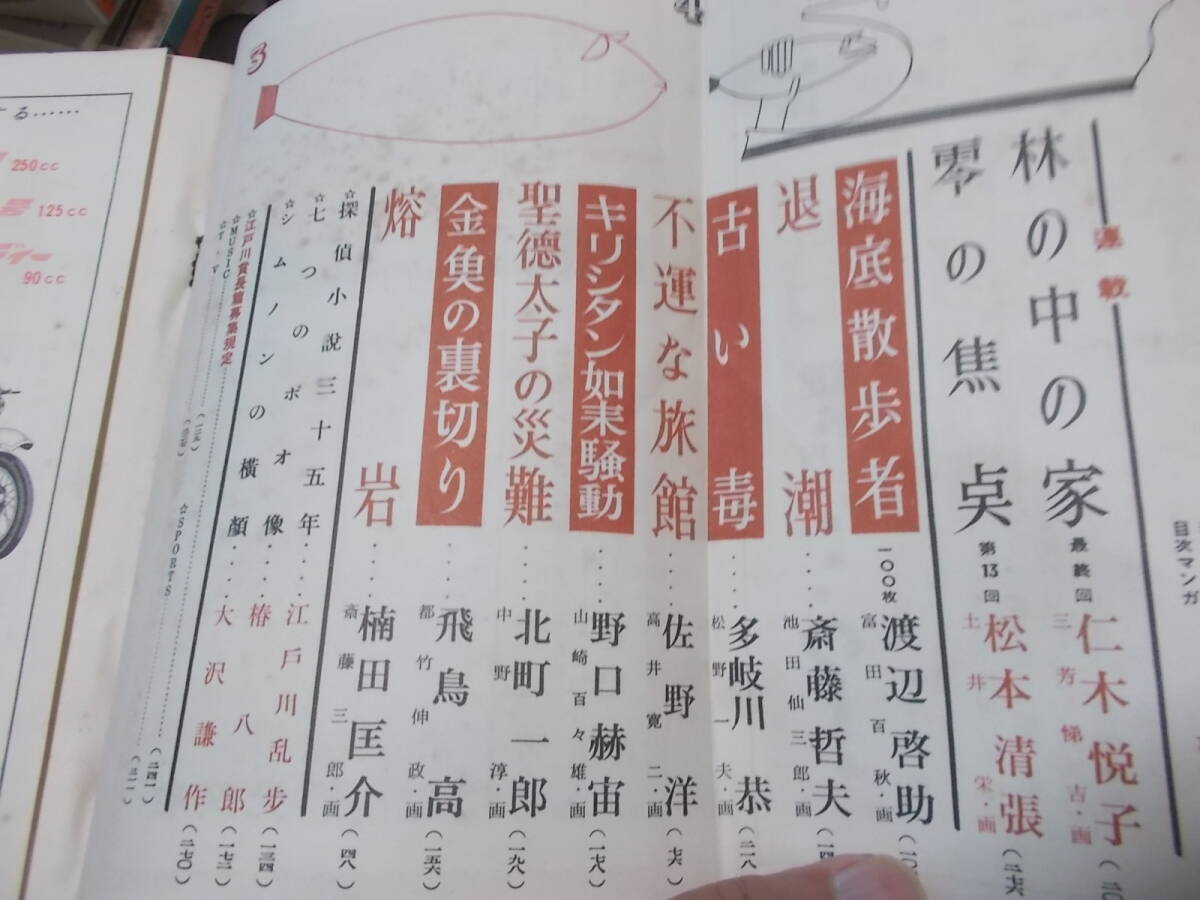 連載
林の中の家 最終回 仁木悦子
三芳悌吉・画
零の焦点 第13回 松本清張 (二六)
土井栄・画
海底散歩者 一〇〇枚 渡辺啓助
富田百秋・画
退潮 斎藤哲夫
池田仙三郎・画
古い毒 多岐川恭 (二一八)
松野一夫・画
不運な旅館 佐野洋 (七六)
高井寛二・画
キリシタン如来騒動 野口赫宙 (一七八)
山崎百々雄・画
聖徳太子の災難 北町一郎 (一九八)
中野淳・画
金魚の裏切り 飛鳥高 (一五六)
都竹伸政・画
熔岩 楠田匡介 (四八)
斎藤三郎・画
☆探偵小説三十五年 江戸川乱歩 (一三四)
☆七つのボオ像 椿八郎 (一七二)
☆シムノンの横顔 大沢謙作 (二七〇)
☆江戸川賞長篇募集規定
☆MUSIC
☆TV
☆SPORTS
(二四一)
(三一一)
目次マンガ
3
4
する……
250cc
125cc
90cc